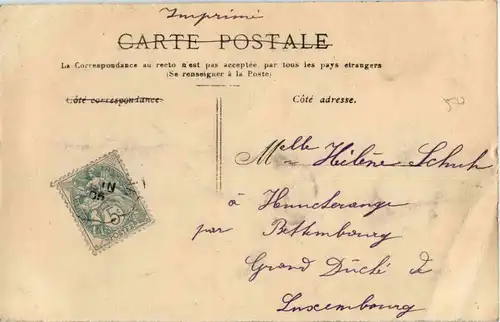 Imprimé
CARTE POSTALE
La Correspondance au recto n'est pas acceptée par tous les pays étrangers
(Se renseigner à la Poste)
Côté correspondance
Côté adresse.
50
Melle Hélène Schuh
à Huncterange
par Bettembourg
Grand Duché de
Luxembourg
IN
06
5